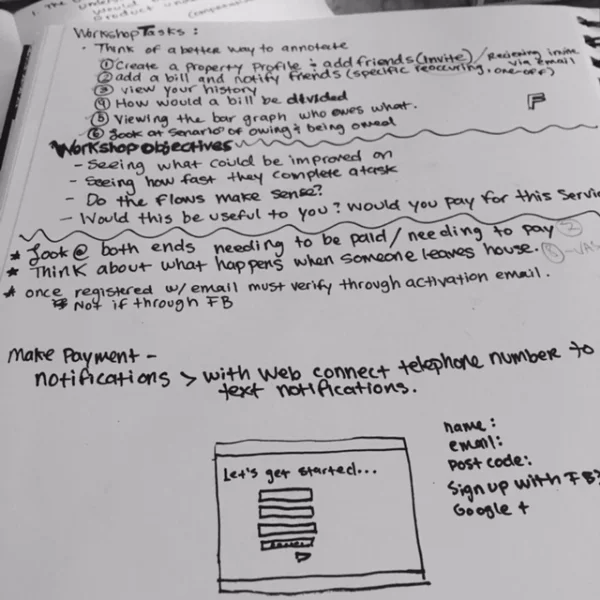 1. The
would
product
Workshop Tasks :
• Think of a better way to annotate
① Create a Property Profile + add friends (Invite) / Recieving invite via email
② add a bill and notify friends (specific reoccuring, one-off)
③ view your history
④ How would a bill be divided
⑤ Viewing the bar graph who owes what.
⑥ Look at senario of owing + being owed
F
Workshop Objectives
- Seeing what could be improved on
- Seeing how fast they complete a task
- Do the flows make sense?
- Would this be useful to you? Would you pay for this Servi
* Look @ both ends needing to be paid / needing to pay ②
* Think about what happens when someone leaves house.
* once registered w/ email must verify through activation email.
* Not if through FB
Make Payment -
notifications > with Web connect telephone number to
text notifications.
Let's get started...
name :
email:
Post code:
Sign up with FB?
Google +